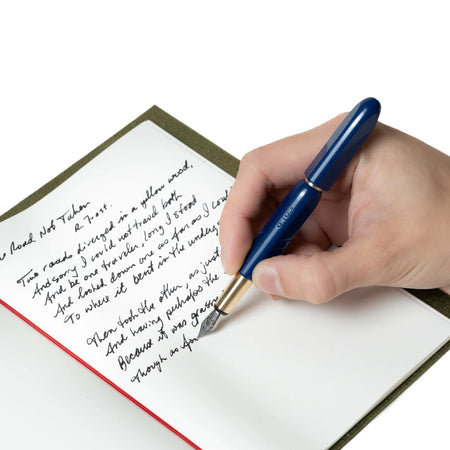 Road Not Taken
R. Frost
Two roads diverged in a yellow wood,
And sorry I could not travel both
And be one traveler, long I stood
And looked down one as far as I could
To where it bent in the underg
Then took the other, as just
And having perhaps the
Because it was grass
Though as for